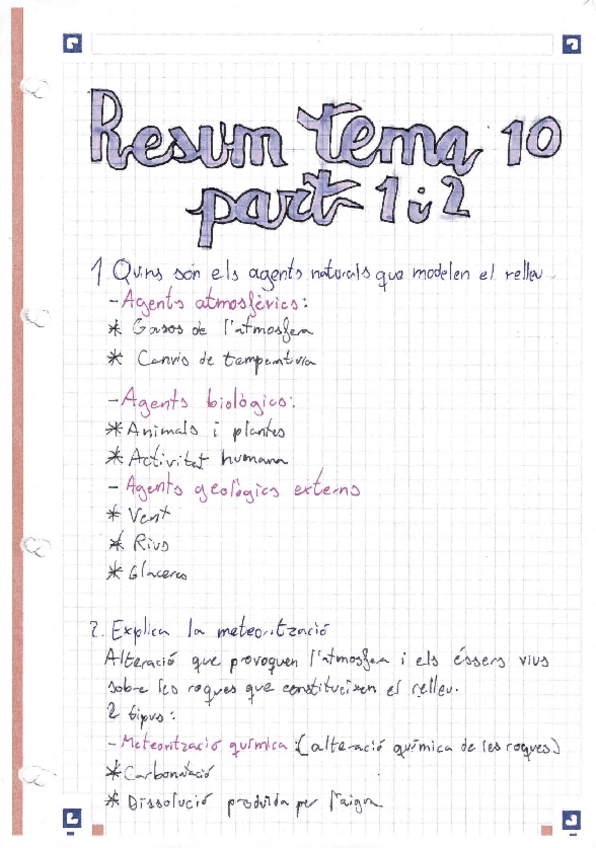 Resum tema 10
part 1 i 2
1. Quins són els agents naturals que modelen el relleu
- Agents atmosfèrics:
* Gasos de l'atmosfera
* Canvis de temperatura
- Agents biològics:
* Animals i plantes
* Activitat humana
- Agents geològics externs
* Vent
* Rius
* Glaceres
2. Explica la meteorització
Alteració que provoquen l'atmosfera i els éssers vius
sobre les roques que constitueixen el relleu.
2 tipus:
- Meteorització química: (alteració química de les roques)
* Carbonatació
* Dissolució produïda per l'aigua